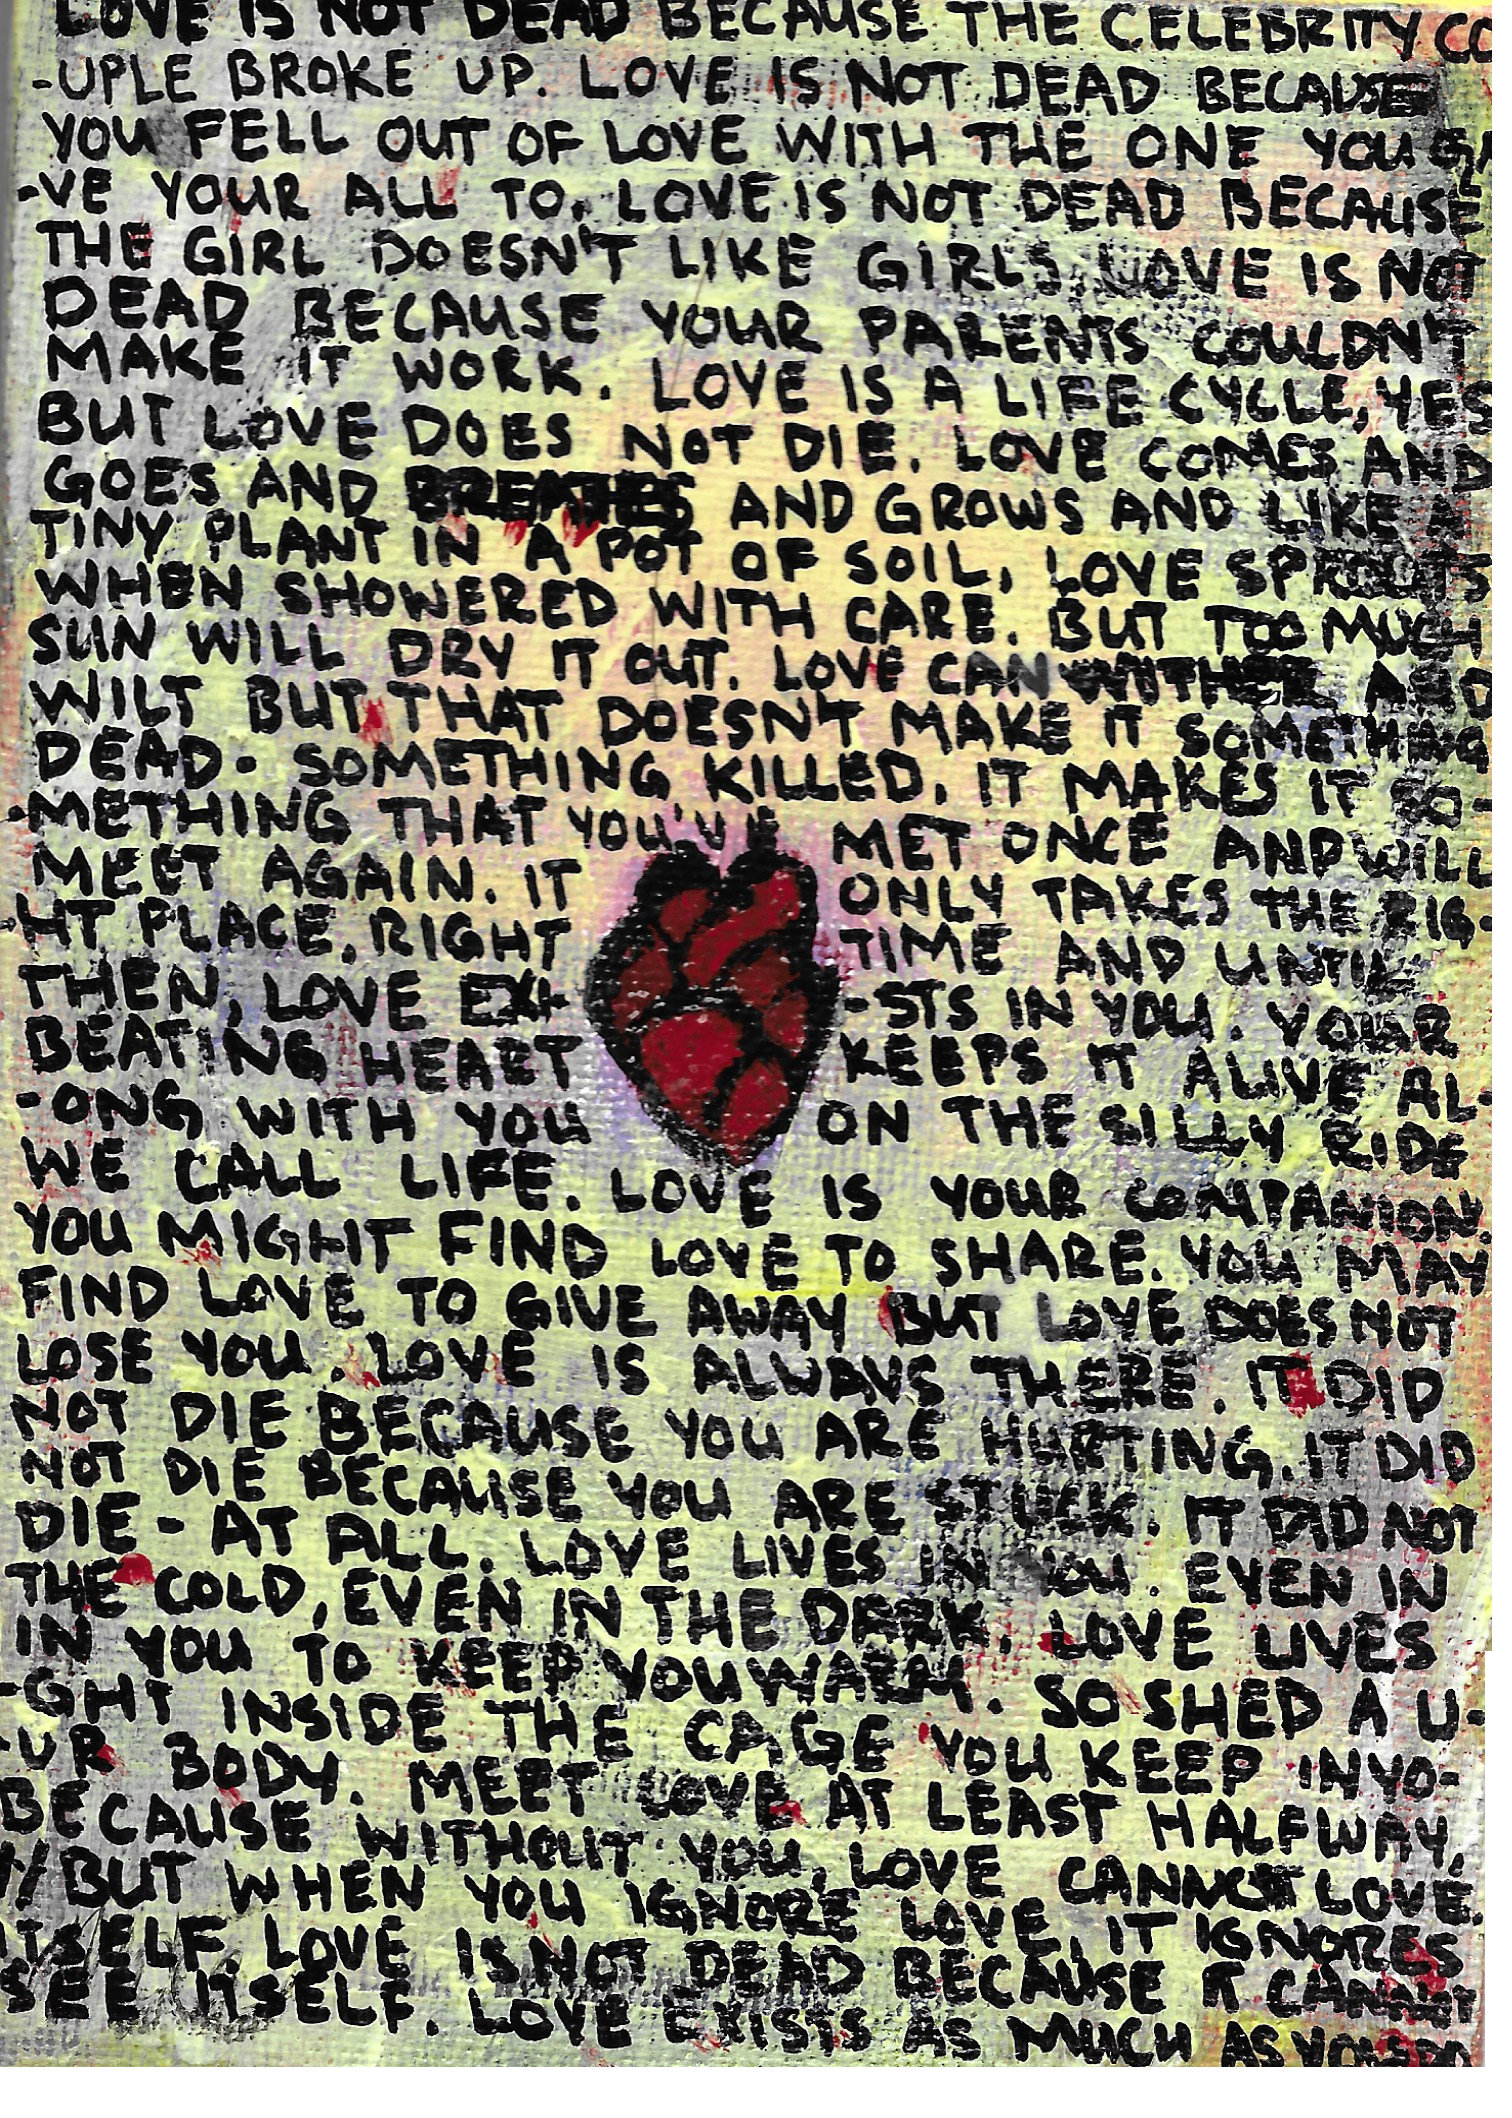 LOVE IS NOT DEAD BECAUSE THE CELEBRITY CO
-UPLE BROKE UP. LOVE IS NOT DEAD BECAUSE
YOU FELL OUT OF LOVE WITH THE ONE YOU GA
-VE YOUR ALL TO. LOVE IS NOT DEAD BECAUSE
THE GIRL DOESN'T LIKE GIRLS. LOVE IS NOT
DEAD BECAUSE YOUR PARENTS COULDN'T
MAKE IT WORK. LOVE IS A LIFE CYCLE, YES
BUT LOVE DOES NOT DIE. LOVE COMES AND
GOES AND BREATHES AND GROWS AND LIKE A
TINY PLANT IN A POT OF SOIL, LOVE SPROUTS
WHEN SHOWERED WITH CARE. BUT TOO MUCH
SUN WILL DRY IT OUT. LOVE CAN WITHER AND
WILT BUT THAT DOESN'T MAKE IT SOMETHING
DEAD. SOMETHING KILLED. IT MAKES IT SO-
-METHING THAT YOU'VE MET ONCE AND WILL
MEET AGAIN. IT ONLY TAKES THE RIG-
-HT PLACE, RIGHT TIME AND UNTIL
THEN, LOVE EXI- -STS IN YOU. YOUR
BEATING HEART KEEPS IT ALIVE AL-
-ONG WITH YOU ON THE SILLY RIDE
WE CALL LIFE. LOVE IS YOUR COMPANION.
YOU MIGHT FIND LOVE TO SHARE. YOU MAY
FIND LOVE TO GIVE AWAY BUT LOVE DOES NOT
LOSE YOU. LOVE IS ALWAYS THERE. IT DID
NOT DIE BECAUSE YOU ARE HURTING. IT DID
NOT DIE BECAUSE YOU ARE STUCK. IT DID NOT
DIE - AT ALL. LOVE LIVES IN YOU. EVEN IN
THE COLD, EVEN IN THE DARK, LOVE LIVES
IN YOU TO KEEP YOU WARM. SO SHED A LI-
-GHT INSIDE THE CAGE YOU KEEP IN YO-
-UR BODY. MEET LOVE AT LEAST HALFWAY,
BECAUSE WITHOUT YOU, LOVE CANNOT LOVE.
// BUT WHEN YOU IGNORE LOVE, IT IGNORES
ITSELF. LOVE IS NOT DEAD BECAUSE IT CANNOT
SEE ITSELF. LOVE EXISTS AS MUCH AS YOU